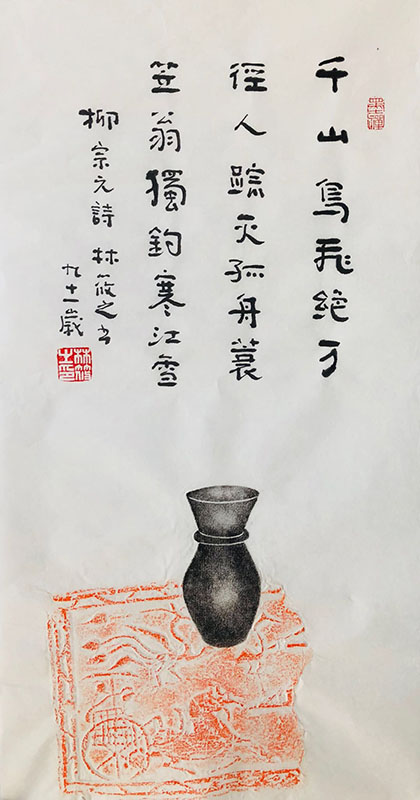 千山鳥飛絶万
徑人踪灭孤舟蓑
笠翁獨釣寒江雪
柳宗元詩 林筱之书
九十一歲
林筱之印